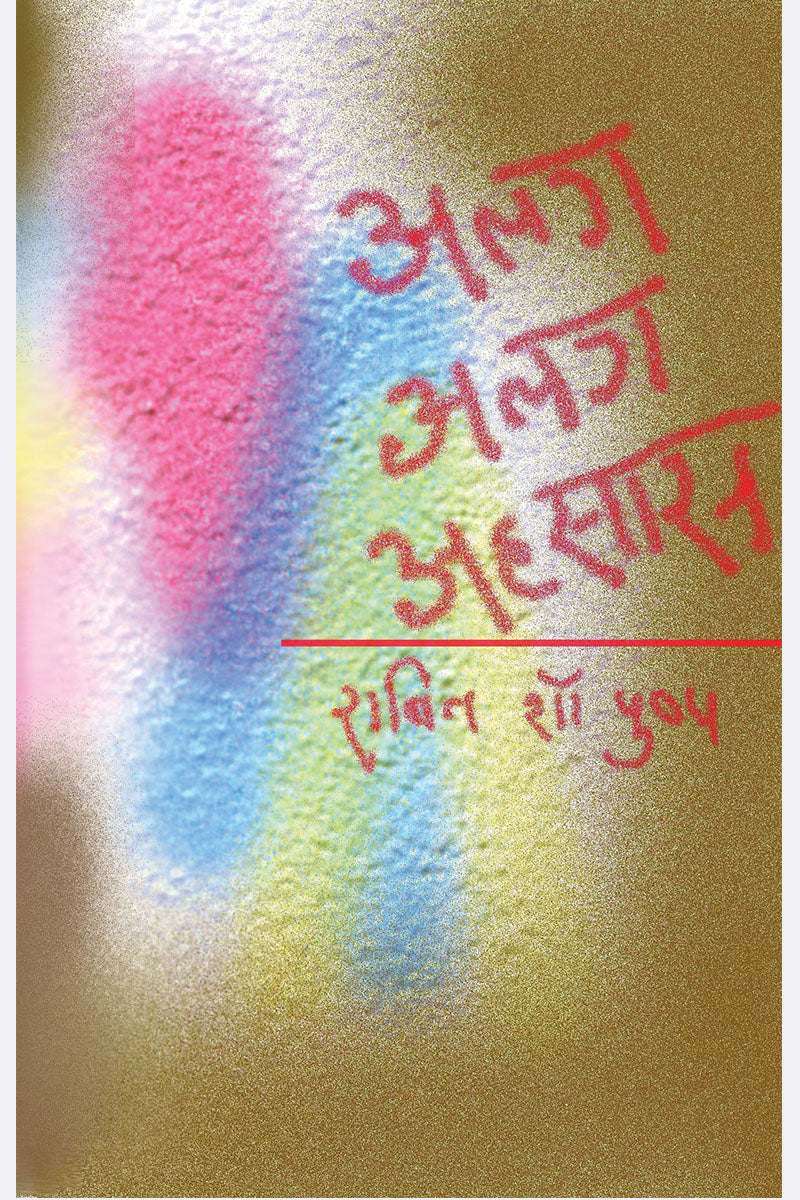 अलग
अलग
अहसास
राबिन शॉ पुष्प